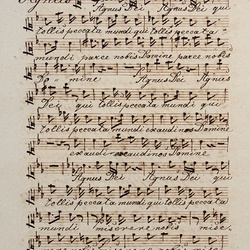 Agnus Dei Agnus Dei qui
tollis peccata mundi qui tollis peccata
mundi parce nobis Domine parce nobis
Do - mine Agnus Dei Agnus
Dei qui tollis peccata mundi qui
tollis peccata mundi exaudi nos Domine
exaudi exaudi nos Domine
Agnus Dei Agnus Dei qui
tollis peccata mundi qui tollis peccata
mundi miserere nobis mise